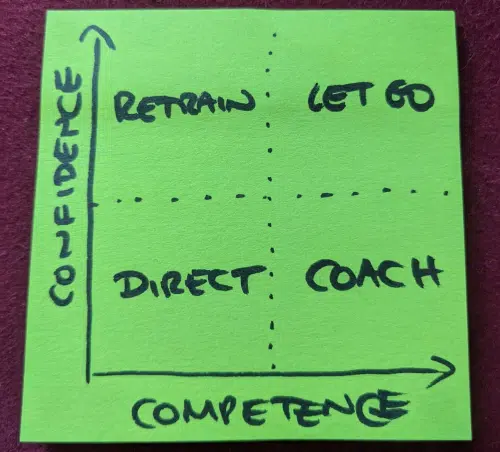 CONFIDENCE
RETRAIN LET GO
DIRECT COACH
COMPETENCE